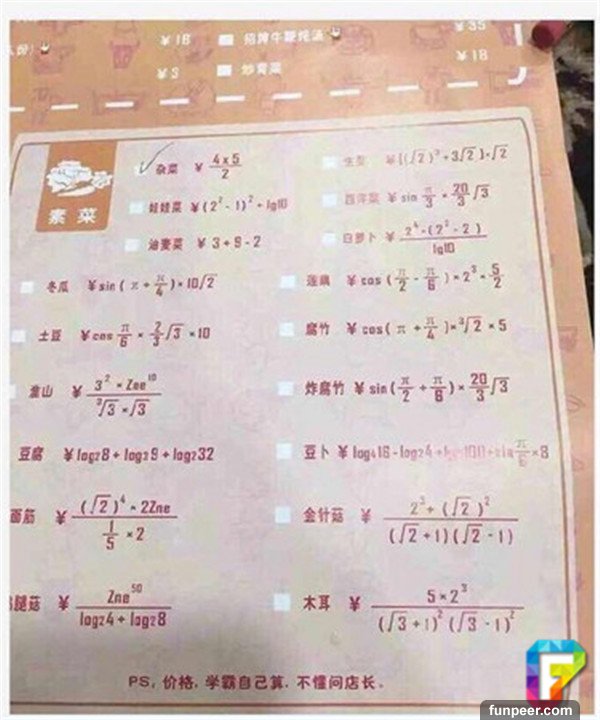 ¥18 招牌牛腱炖汤 ¥35
¥3 炒青菜 ¥18
素菜
杂菜 ¥ 4×5/2
生菜 ¥[(√2)³+3√2]×√2
娃娃菜 ¥(2²-1)²+lg10
西洋菜 ¥sin π/3 × 20/3 √3
油麦菜 ¥3+9-2
白萝卜 ¥ 2⁴-(2³-2)/lg10
冬瓜 ¥sin(π+π/4)×10√2
莲藕 ¥cos(π/2-π/6)×2³×5/2
土豆 ¥cos π/6 × 2/3 √3 ×10
腐竹 ¥cos(π+π/4)×³√2×5
淮山 ¥ 3²×Zne¹⁰/³√3×√3
炸腐竹 ¥sin(π/2+π/6)×20/3 √3
豆腐 ¥log₂8+log₂9+log₂32
豆卜 ¥log₄16-log₂4+ 100+sin π/6 ×8
面筋 ¥ (√2)⁴×2Zne/1/5×2
金针菇 ¥ 2³+(√2)²/(√2+1)(√2-1)
腿菇 ¥ Zne⁵⁰/log₂4+log₂8
木耳 ¥ 5×2³/(√3+1)²(√3-1)²
PS，价格，学霸自己算，不懂问店长。
funpeer.com